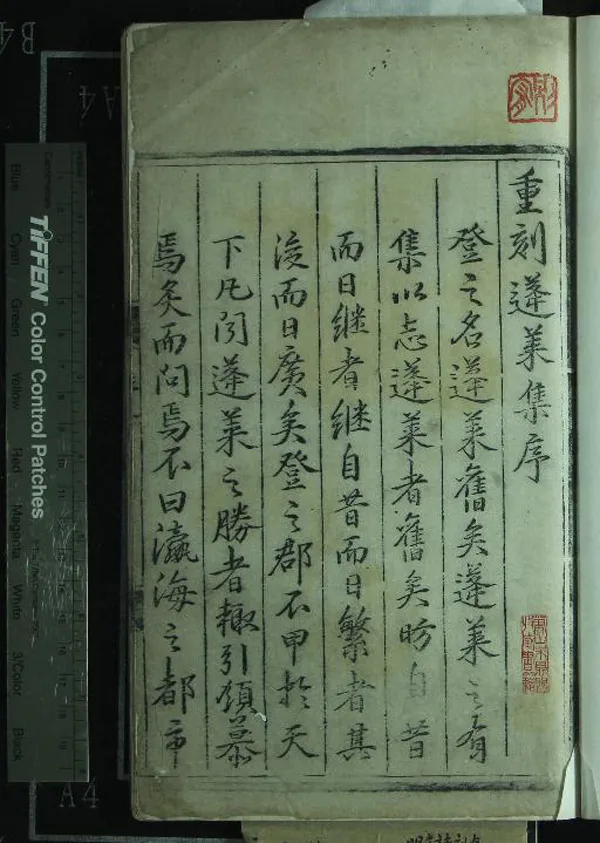 重刻蓬莱集序
登之名蓬莱舊矣蓬莱之有
集以志蓬莱者舊矣昉自昔
而日继者继自昔而日繁者其
後而日廣矣登之郡不甲於天
下凡闻蓬莱之勝者輙引領慕
焉炙而问焉不曰瀛海之都市
TIFFEN Color Control Patches
Blue Cyan Green Yellow Red Magenta White 3/Color Black
Centimetres
B4
A4
A4